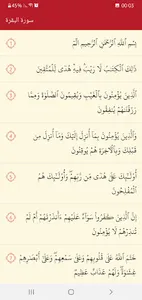 00:03
45%
سورة البقرة
بِسْمِ ٱللَّهِ ٱلرَّحْمَٰنِ ٱلرَّحِيمِ الٓمٓ
١
ذَٰلِكَ ٱلْكِتَٰبُ لَا رَيْبَ فِيهِ هُدًى لِّلْمُتَّقِينَ
٢
ٱلَّذِينَ يُؤْمِنُونَ بِٱلْغَيْبِ وَيُقِيمُونَ ٱلصَّلَوٰةَ وَمِمَّا
رَزَقْنَٰهُمْ يُنفِقُونَ
٣
وَٱلَّذِينَ يُؤْمِنُونَ بِمَآ أُنزِلَ إِلَيْكَ وَمَآ أُنزِلَ مِن
قَبْلِكَ وَبِٱلْءَاخِرَةِ هُمْ يُوقِنُونَ
٤
أُو۟لَٰٓئِكَ عَلَىٰ هُدًى مِّن رَّبِّهِمْ وَأُو۟لَٰٓئِكَ هُمُ
ٱلْمُفْلِحُونَ
٥
إِنَّ ٱلَّذِينَ كَفَرُوا۟ سَوَآءٌ عَلَيْهِمْ ءَأَنذَرْتَهُمْ أَمْ لَمْ
تُنذِرْهُمْ لَا يُؤْمِنُونَ
٦
خَتَمَ ٱللَّهُ عَلَىٰ قُلُوبِهِمْ وَعَلَىٰ سَمْعِهِمْ وَعَلَىٰٓ أَبْصَٰرِهِمْ
غِشَٰوَةٌ وَلَهُمْ عَذَابٌ عَظِيمٌ
٧